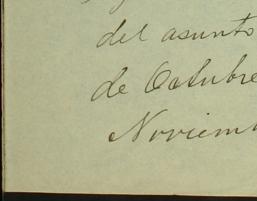 del asunto
de Octubre
Noviem